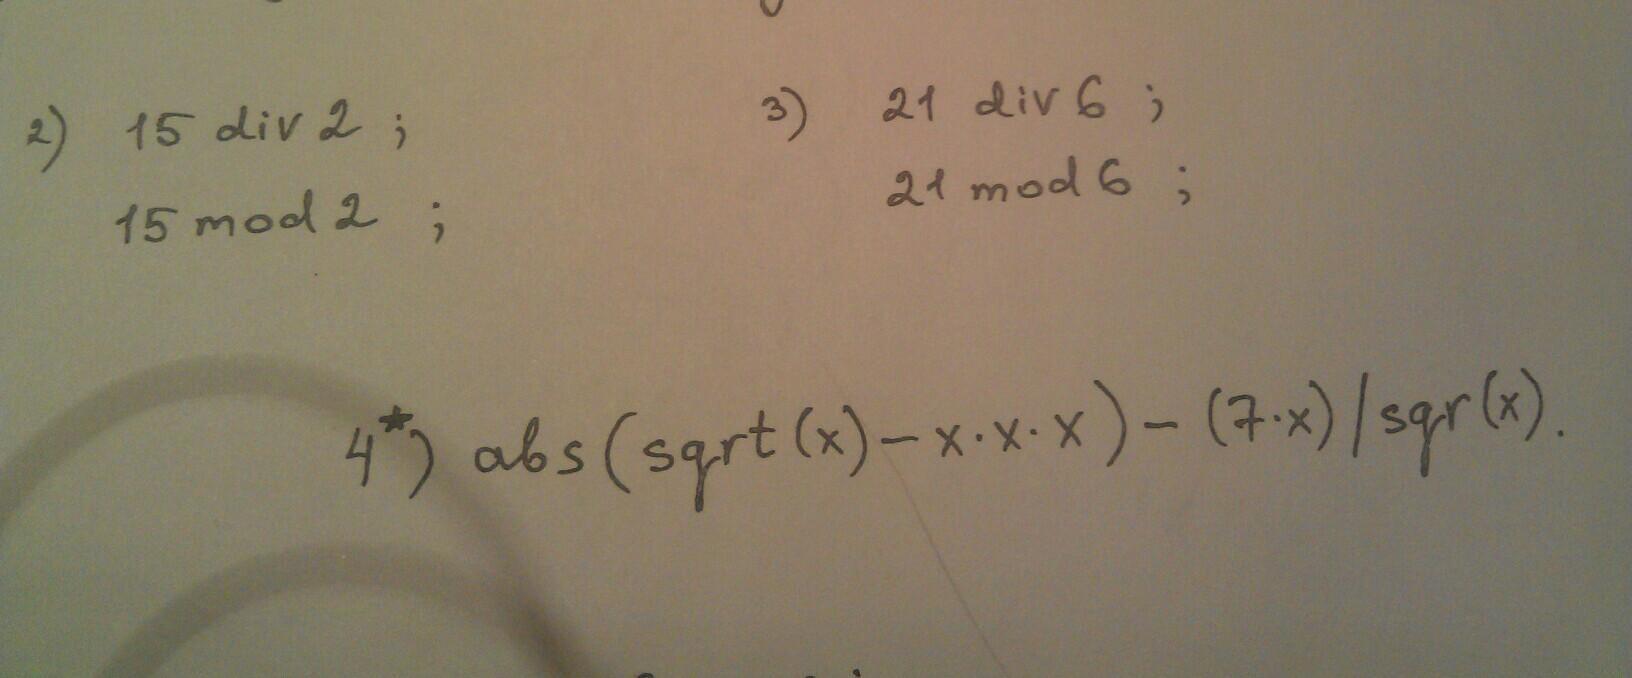 2) 15 div 2 ;
15 mod 2 ;
3) 21 div 6 ;
21 mod 6 ;
4*) abs(sqrt(x)-x·x·x)-(7·x)/sqr(x).